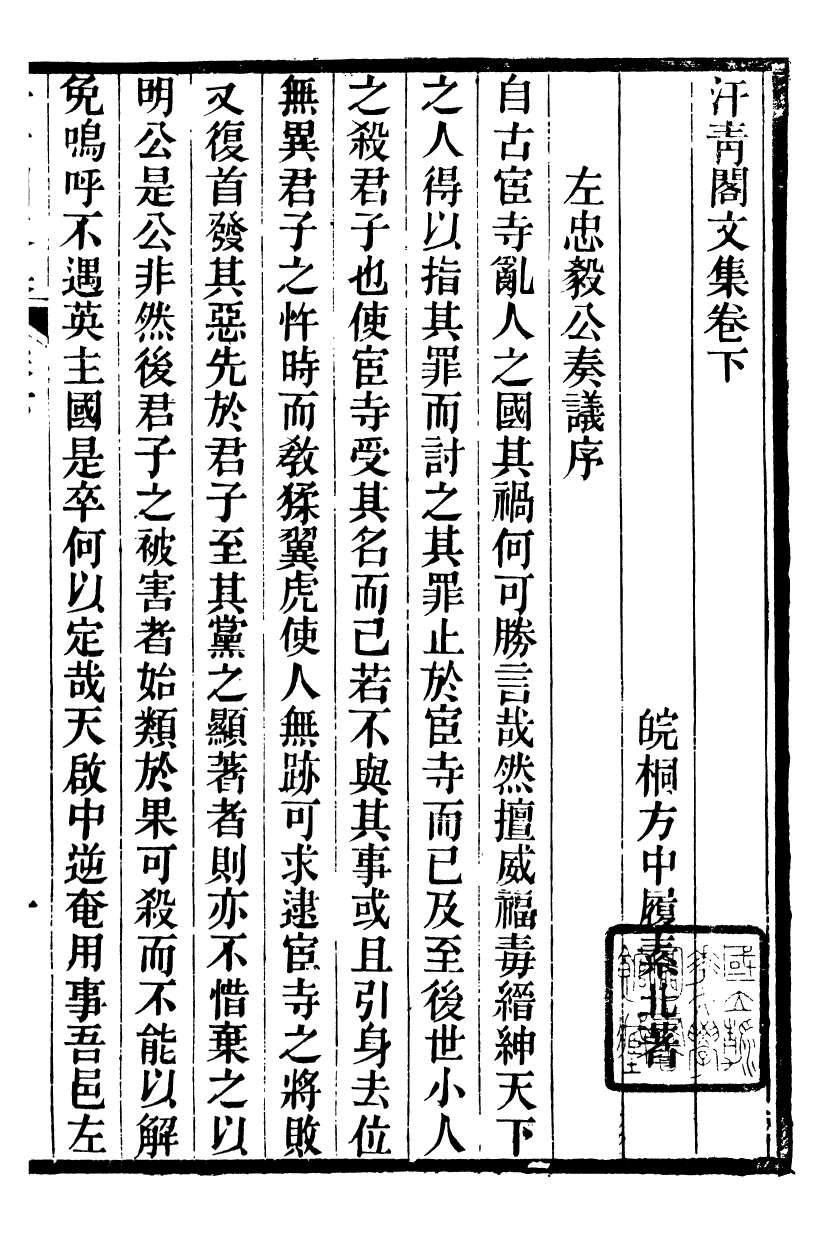 汗青閣文集卷下
皖桐方中履素北著
左忠毅公奏議序
自古宦寺亂人之國其禍何可勝言哉然擅威福毒縉紳天下
之人得以指其罪而討之其罪止於宦寺而已及至後世小人
之殺君子也使宦寺受其名而已若不與其事或且引身去位
無異君子之忤時而教猱翼虎使人無跡可求逮宦寺之將敗
又復首發其惡先於君子至其黨之顯著者則亦不惜棄之以
明公是公非然後君子之被害者始類於果可殺而不能以解
免嗚呼不遇英主國是卒何以定哉天啟中逆奄用事吾邑左